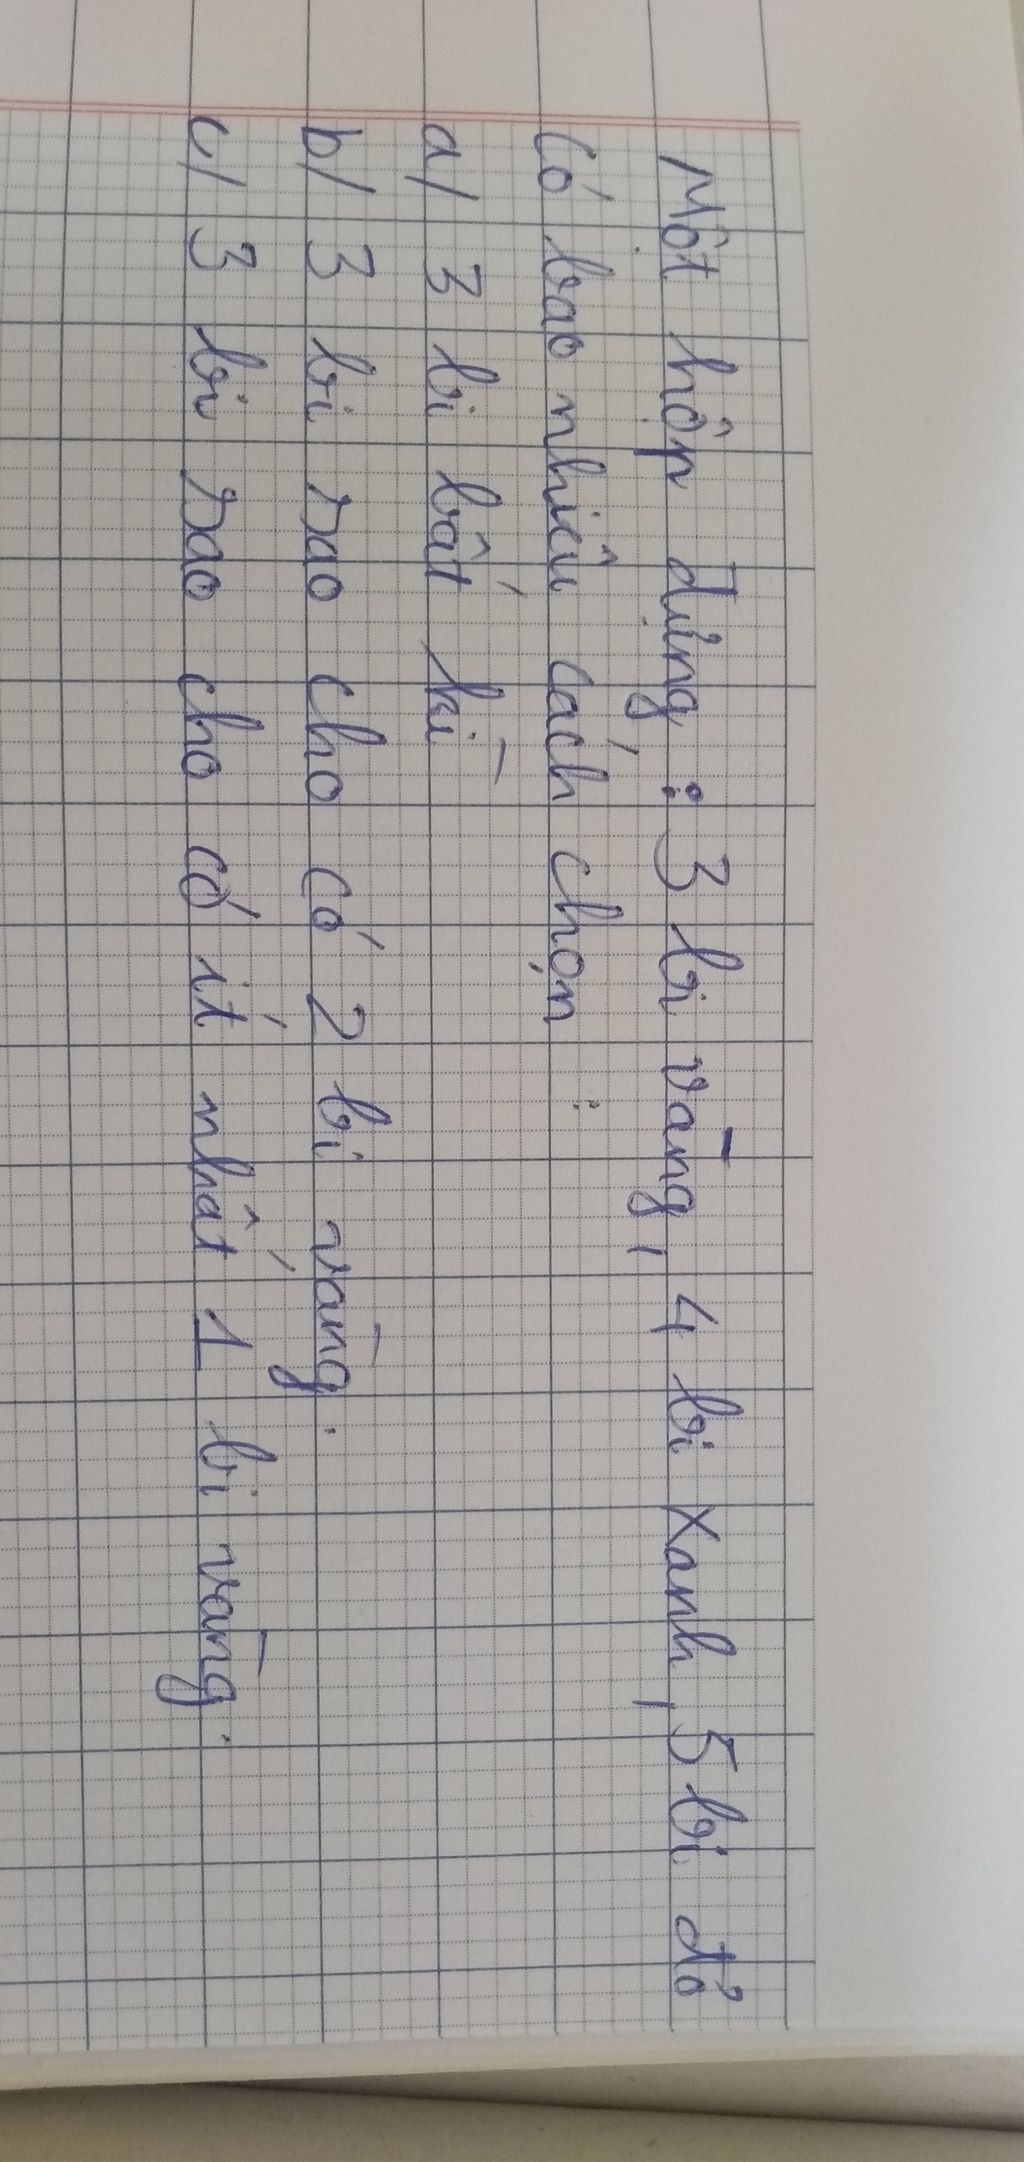 Một hộp đựng : 3 bi vàng, 4 bi xanh, 5 bi đỏ
Có bao nhiêu cách chọn :
a/ 3 bi bất kì
b/ 3 bi sao cho có 2 bi vàng.
c/ 3 bi sao cho có ít nhất 1 bi vàng.